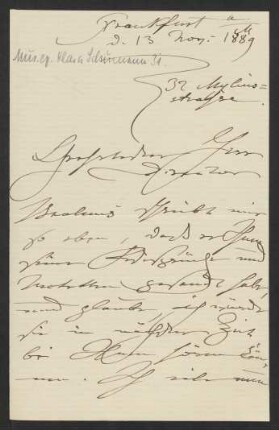 Frankfurt a/M
d. 13 Nov. 1889
Mus. ep. Klara Schumann 31.
32 Mylius-
strasse.
Geehrtester Herr
Director
Brahms schreibt mir
so eben, dass er Ihnen
seine Fest- und
Motetten gesandt habe,
und glaube, ich würde
sie in nächster Zeit
bei Ihnen hören kön-
nen. Ich